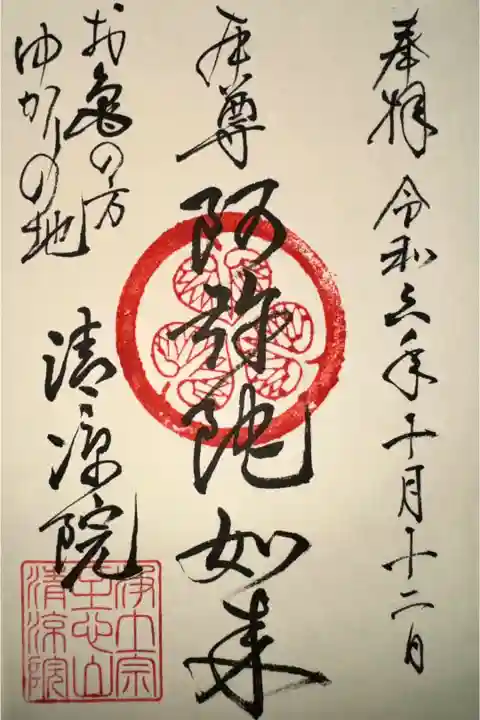 奉拝 令和六年十月十二月
本尊
阿弥陀如来
お亀の方
ゆかりの地
清涼院
浄土宗
至心山
清涼院